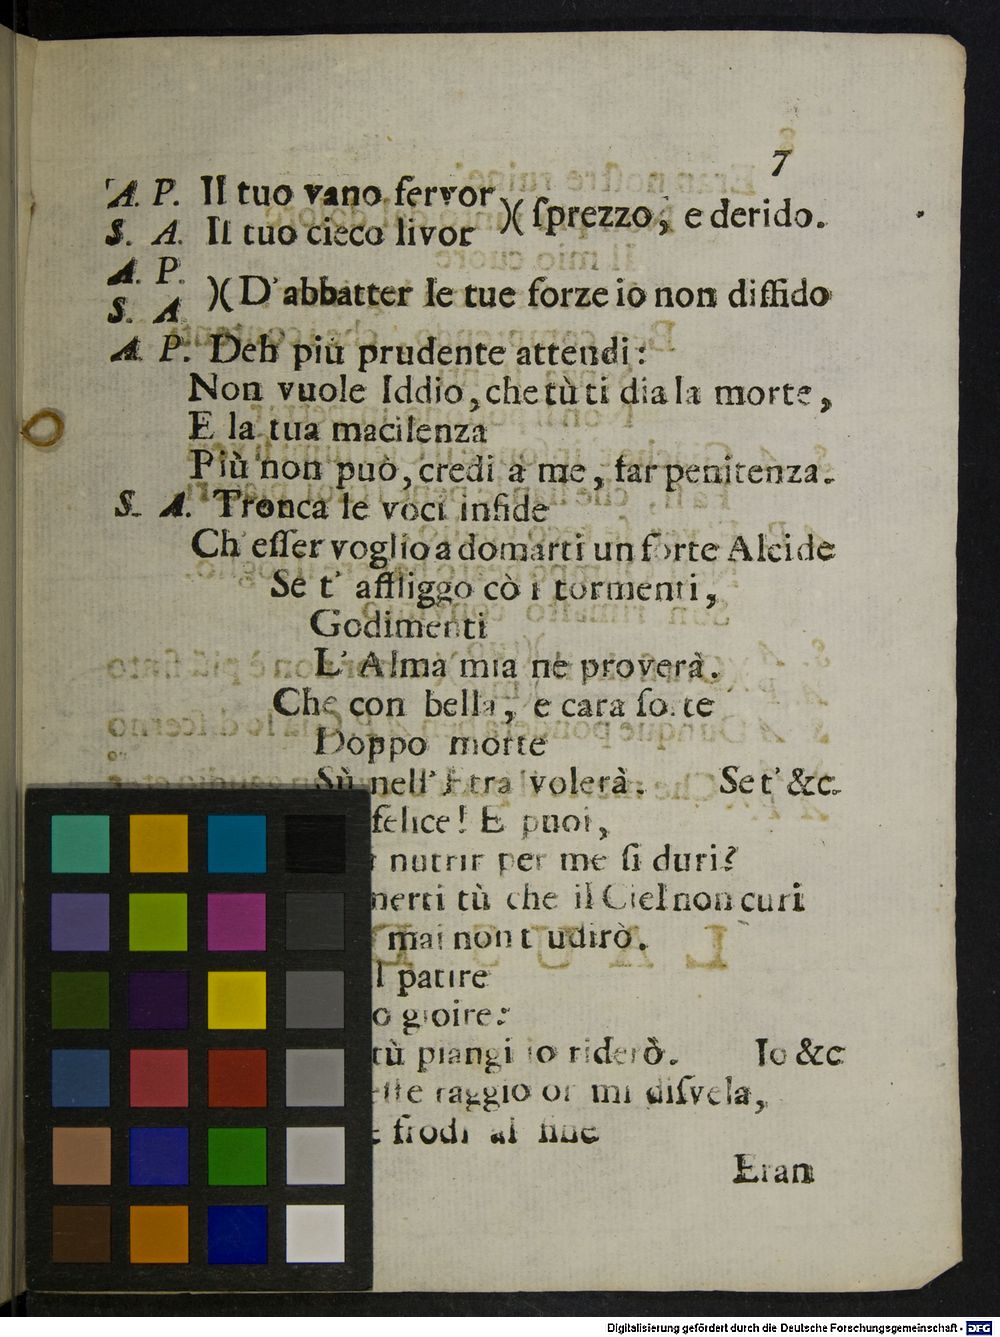 7
A. P. Il tuo vano fervor )( ſprezzo, e derido.
S. A. Il tuo cieco livor
A. P.
S. A. )( D'abbatter le tue forze io non diffido
A. P. Deh più prudente attendi:
Non vuole Iddio, che tù ti dia la morte,
E la tua macilenza
Più non può, credi a me, far penitenza.
S. A. Tronca le voci infide
Ch'eſſer voglio a domarti un forte Alcide
Se t' affliggo cò i tormenti,
Godimenti
L' Alma mia ne proverà.
Che con bella, e cara ſorte
Doppo morte
Sù nell' Etra volerà. Se t' &c.
felice! E puoi,
nutrir per me ſi duri?
nerti tù che il Ciel non curi
mai non t udirò.
l patire
o gioire:
tù piangi io riderò. Io &c
raggio or mi diſvela,
frodi al fine
Eran
Digitalisierung gefördert durch die Deutsche Forschungsgemeinschaft - DFG